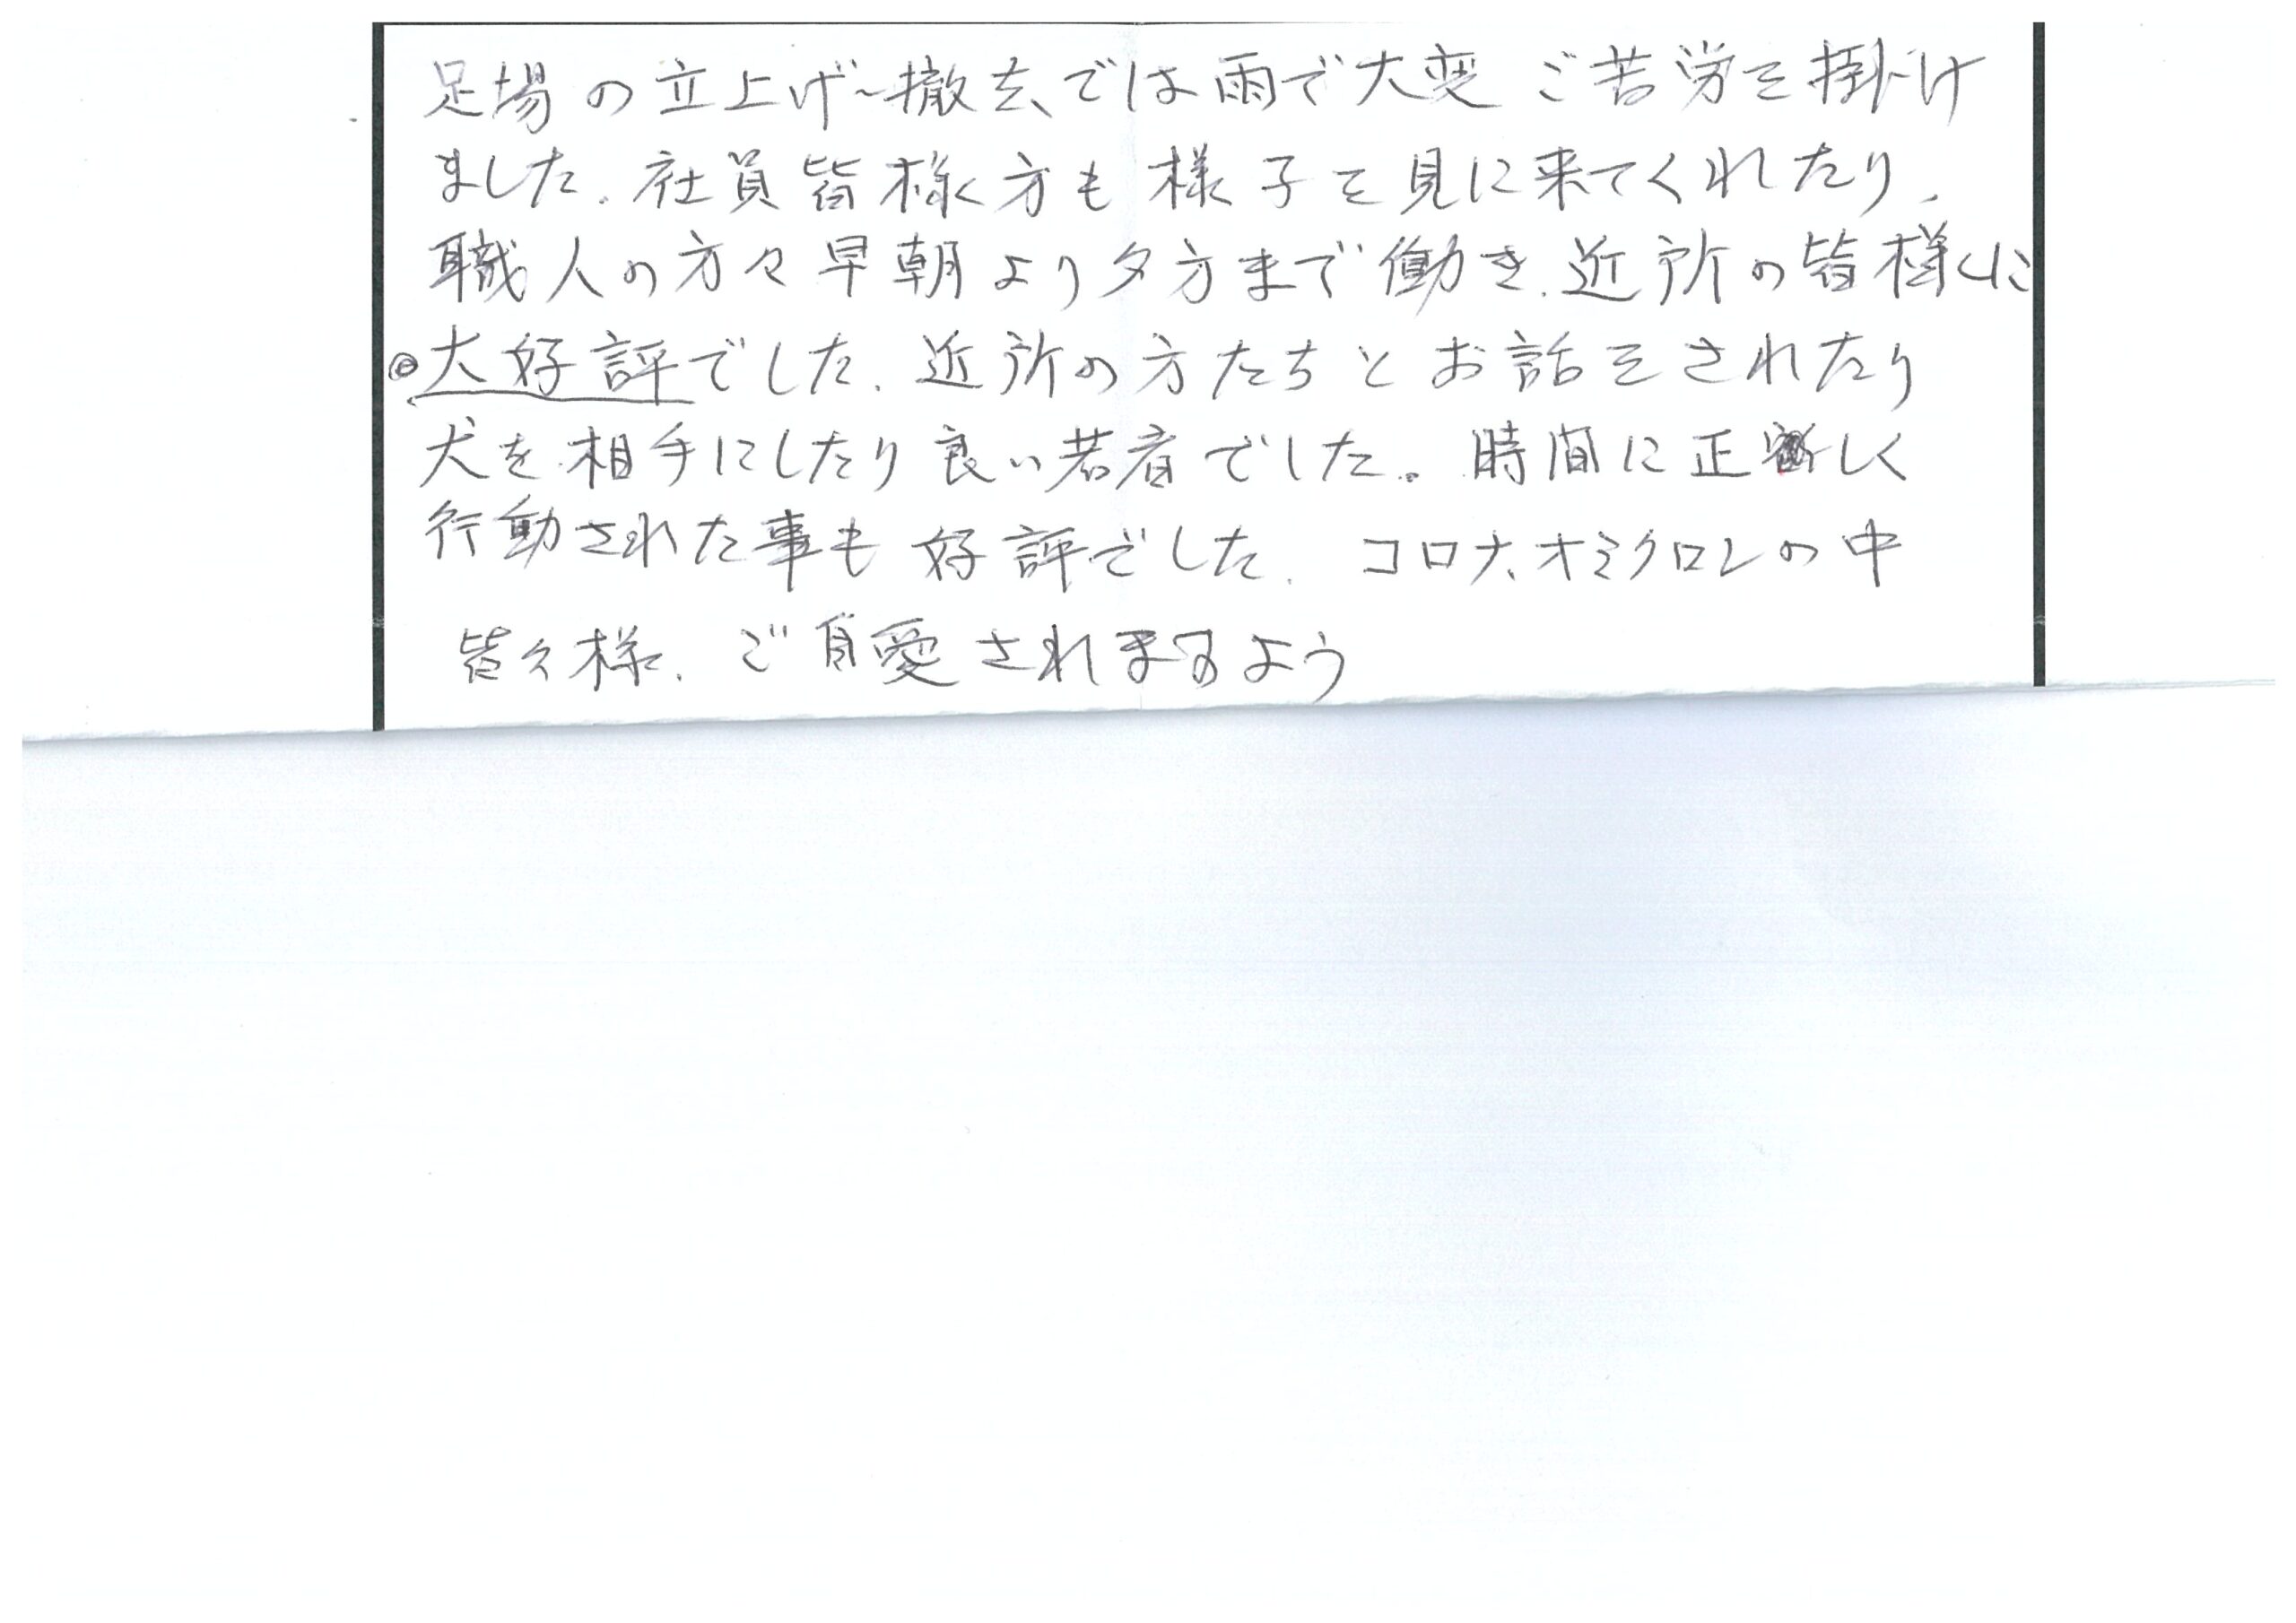 足場の立上げ~撤去では雨で大変ご苦労を掛け
ました。社員皆様方も様子を見に来てくれたり、
職人の方々早朝より夕方まで働き、近所の皆様に
◎大好評でした。近所の方たちとお話をされたり
犬を相手にしたり良い若者でした。時間に正しく
行動された事も好評でした。コロナ、オミクロンの中
皆々様、ご自愛されますよう